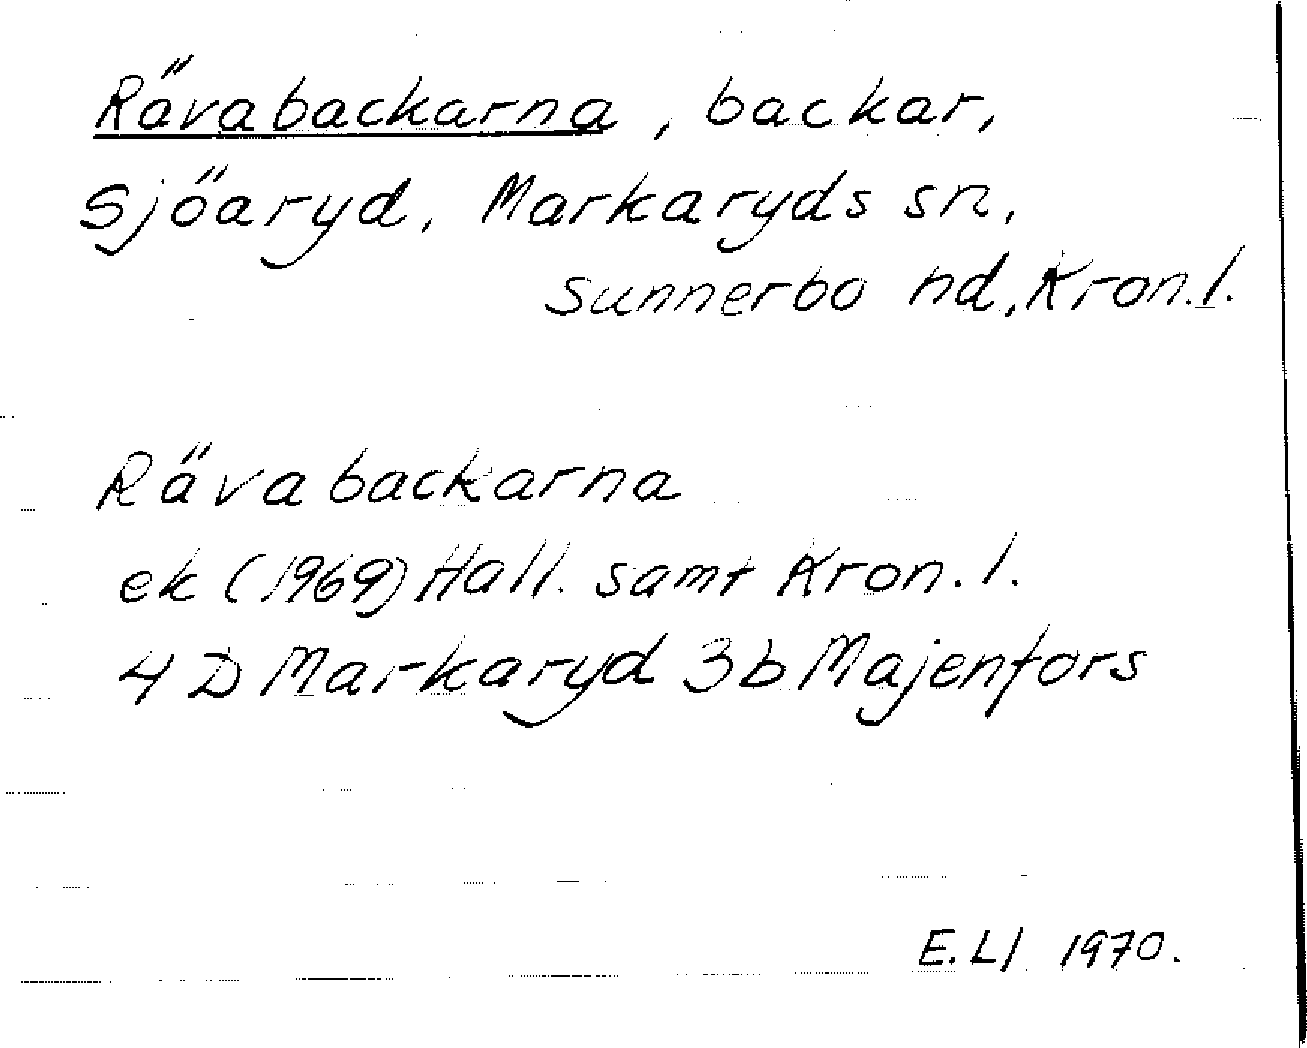 Rävabackarna, backar,
Sjöaryd, Markaryds sn,
Sunnerbo hd, Kron.l.
Rävabackarna
ek (1969) Hall. samt Kron.l.
4D Markaryd 3b Majenfors
E.Ll 1970.